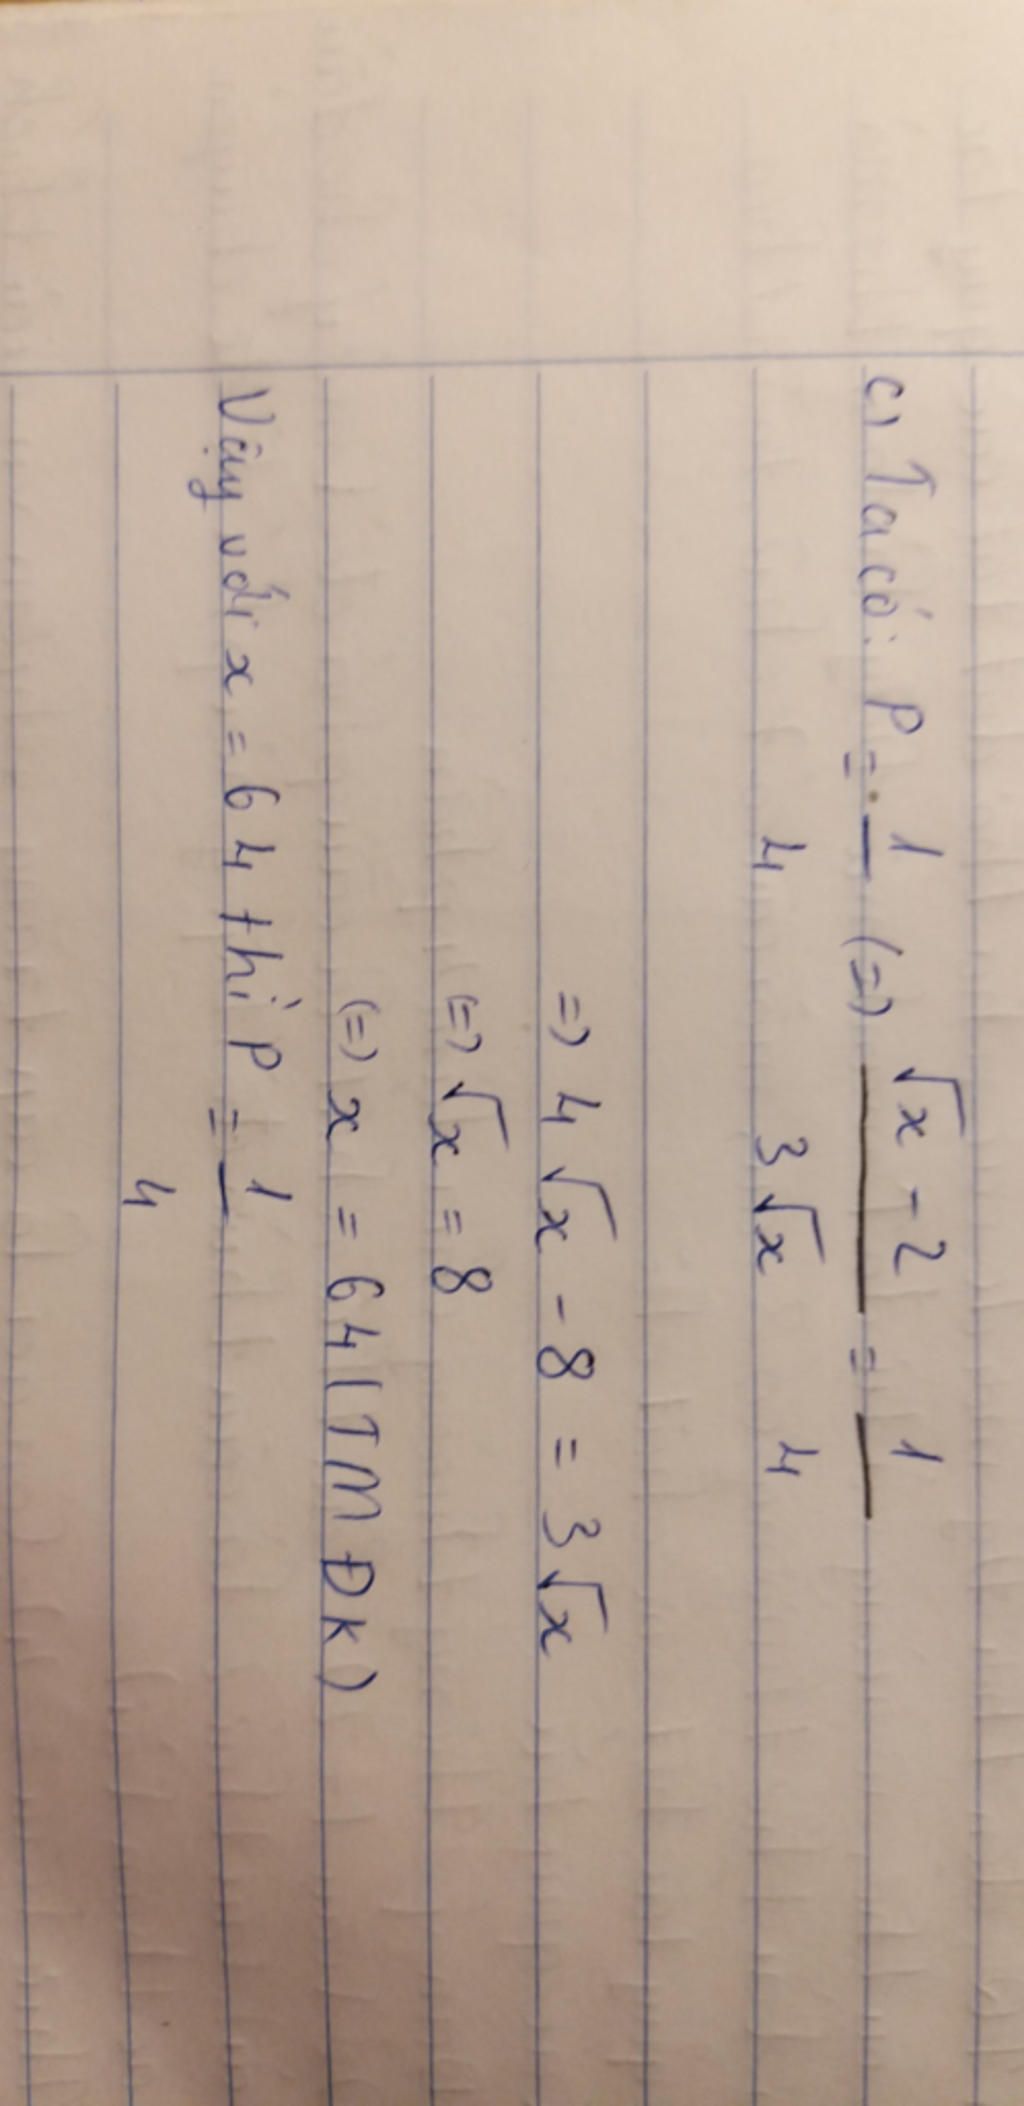 c) Ta có: P = 1/4 (=) √x - 2 / 3√x = 1/4
=) 4√x - 8 = 3√x
(=) √x = 8
(=) x = 64 (TMĐK)
Vậy với x = 64 thì P = 1/4